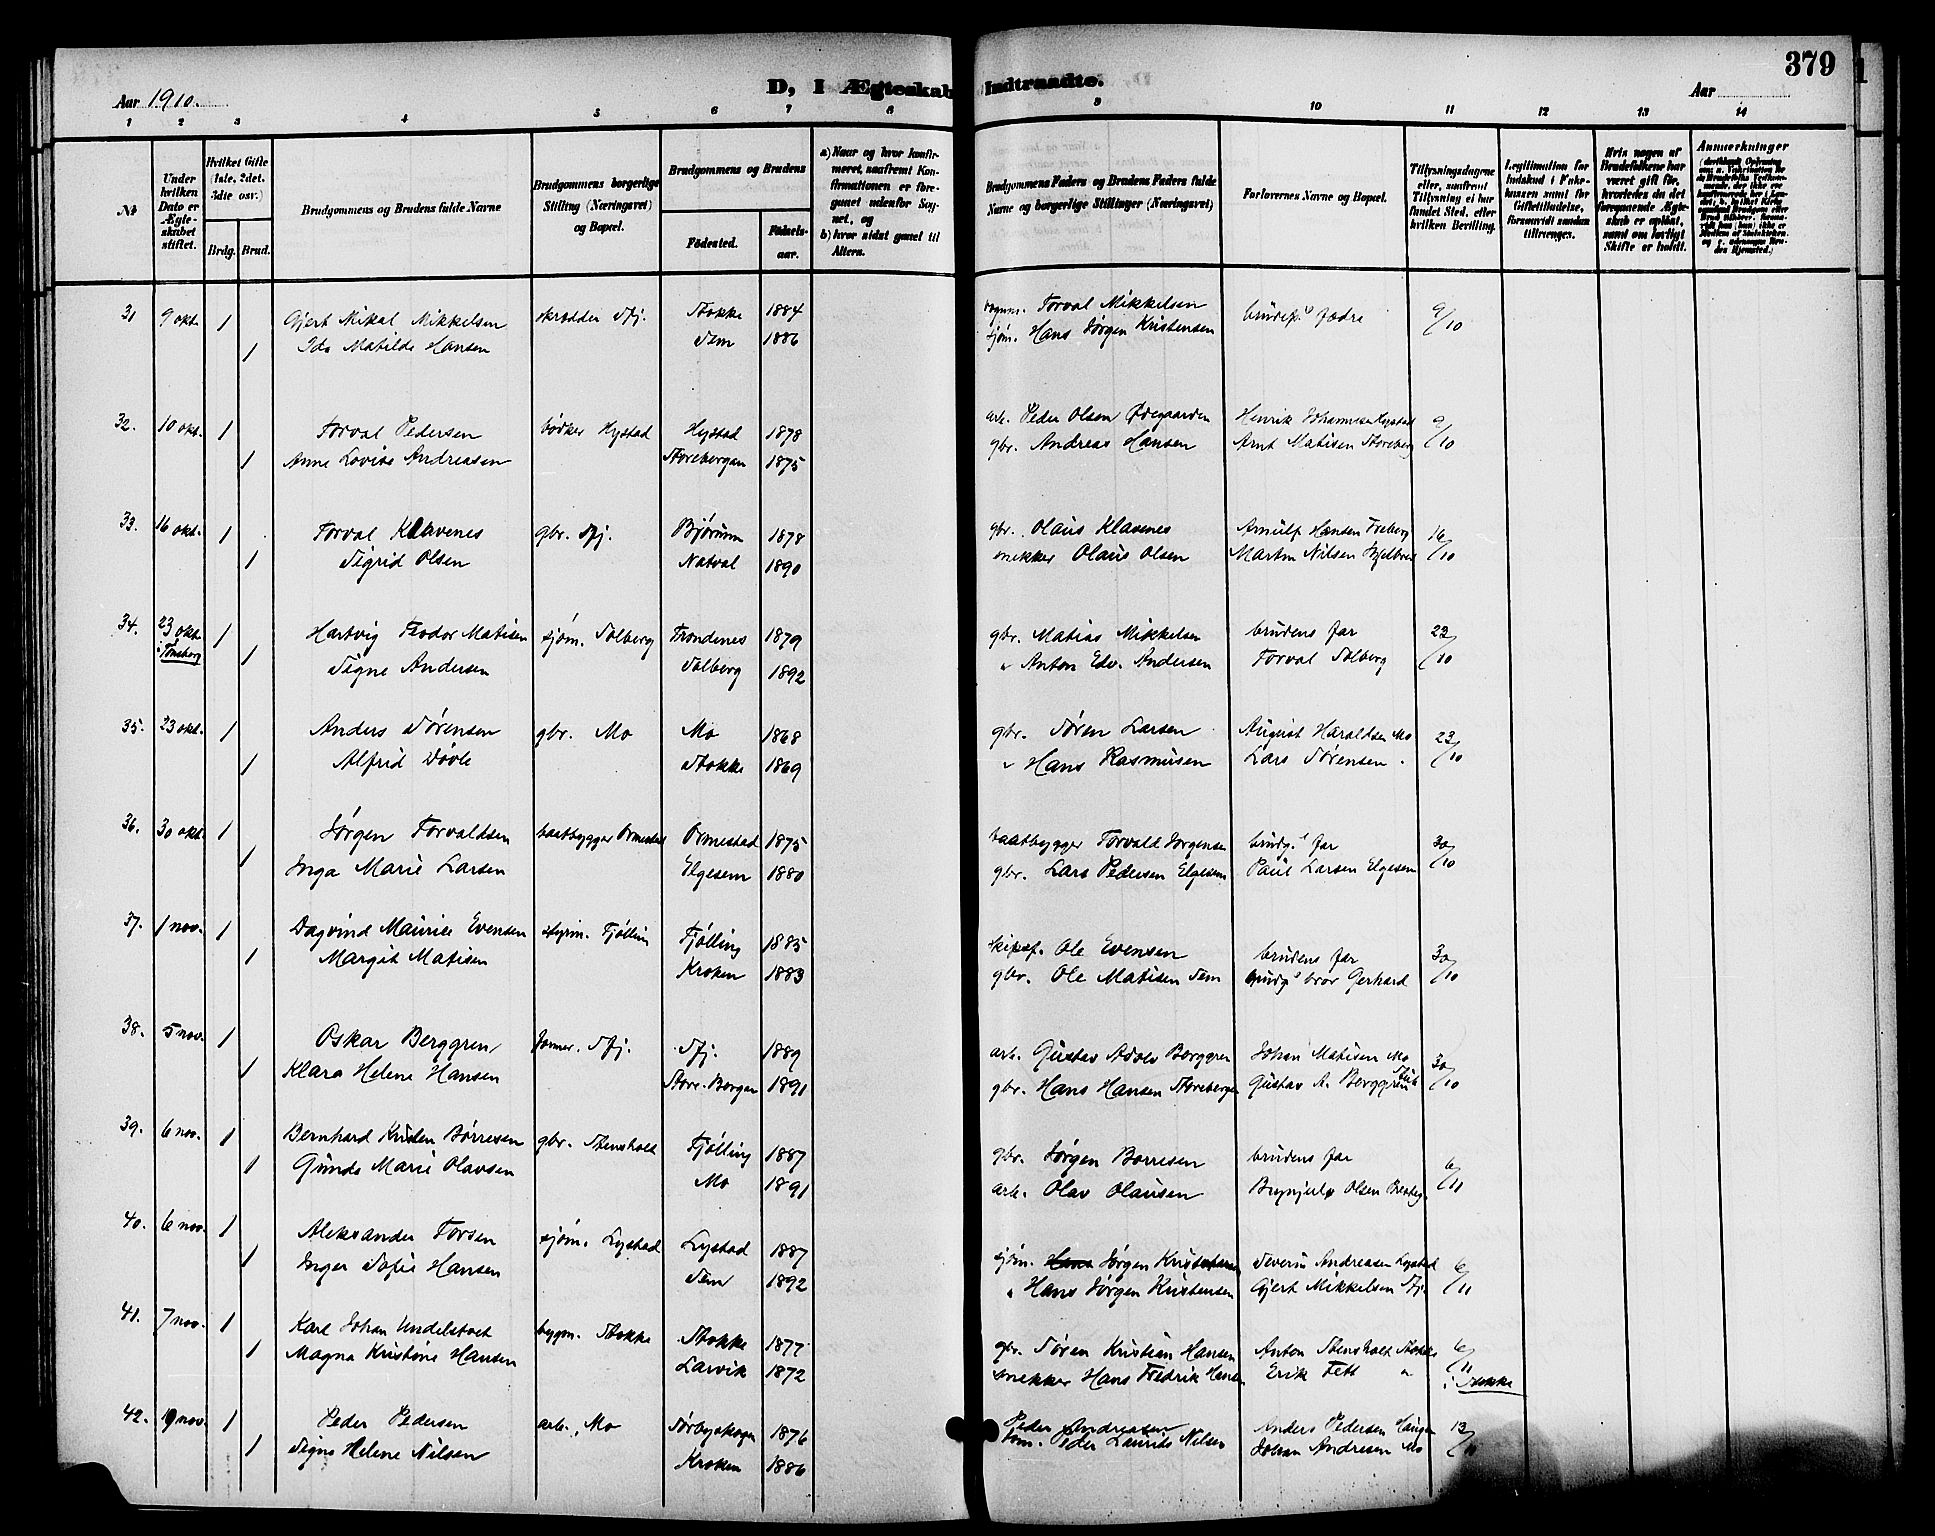 379
Aar 1910.
D, I Ægteskab Indtraadte.
Aar
1 2 3 4 5 6 7 8 9 10 11 12 13 14
Nr
Under hvilken Dato er Ægteskabet stiftet.
Hvilket Gifte (1ste, 2det, 3die osv.)
Brdg. Brud.
Brudgommens og Brudens fulde Navne
Brudgommens borgerlige Stilling (Næringsvei) og Bopæl.
Brudgommens og Brudens
Födested.
Födselsaar.
a) Naar og hvor konfirmeret, naafremt Konfirmationen er foregaaet udenfor Sognet, og
b) hvor sidst gaaet til Alters.
Brudgommens Faders og Brudens Faders fulde Navne og borgerlige Stillinger (Næringsvei)
Forlovernes Navne og Bopæl.
Tillysningsdagene eller, naafremt Tillysning ei har fundet Sted, efter hvilken Bevilling.
Legitimation for Indskud i Enkekassen samt for Giftetilladelse, forsaavidt saadan tiltrænges.
Hvis nogen af Brudefolkene har været gift før, hvorledes da det foregaaende Ægteskab er opløst, samt om lovligt Skifte er holdt.
Anmærkninger
31 9 okt. 1 Gjert Mikal Mikkelsen skrædder Sfj. Stokke 1884 Torval Mikkelsen brudef.s fædre 9/10
1 Ida Matilde Hansen Sem 1886 sjøm. Hans Jørgen Kristensen
32. 10 okt. 1 Torval Pedersen bødker Hystad Hystad 1878 arb. Peder Olsen Ødegaarden Henrik Johannesen Hystad 9/10
1 Anne Lovise Andreasen Storebergan 1875 gbr. Andreas Hansen Arnt Matisen Storeberg
33. 16 okt. 1 Torval Klavenes gbr. Sfj. Bjørum 1878 gbr. Olaus Klavenes Arnulf Hansen Freberg 16/10
1 Sigrid Olsen Natval 1890 snekker Olaus Olsen Martin Nilsen
34. 23 okt. i Tønsberg 1 Hartvig Teodor Matisen sjøm. Solberg Trondenes 1879 gbr. Matias Mikkelsen brudens far 23/10
1 Signe Andersen Solberg 1892 " Anton Edv. Andersen Torval Solberg
35. 23 okt. 1 Anders Sørensen gbr. Mo Mo 1868 gbr. Søren Larsen August Haraldsen Mo 23/10
1 Alfrid Døvle Stokke 1869 " Hans Rasmusen Lars Sørensen "
36. 30 okt. 1 Jørgen Torvaldsen baatbygger Ormestad Ormestad 1875 baatbygger Torvald Jørgensen brudg.s far 30/10
1 Inga Marie Larsen Elgesem 1880 gbr. Lars Pedersen Elgesem Paul Larsen Elgesem
37. 1 nov. 1 Dagvind Maurice Evensen styrm. Tjølling Tjølling 1885 skipsf. Ole Evensen brudens far 30/10
1 Margit Matisen Kroken 1883 gbr. Ole Matisen Sem brudg.s bror Gerhard
38. 5 nov. 1 Oskar Berggren former. Sfj. Sfj. 1889 arb. Gustav Adolv Berggren Johan Matisen Mo 30/10
1 Klara Helene Hansen Store-Bergan 1891 gbr. Hans Hansen Storebergan Gustav A. Berggren Stub
39. 6 nov. 1 Bernhard Kristen Børresen gbr. Stensholt Tjølling 1887 gbr. Jørgen Borresen brudens far 6/11
1 Gunda Marie Olavsen Mo 1891 arb. Olav Olausen Brynjulv Olsen
40. 6 nov. 1 Aleksander Torsen sjøm. Lystad Lystad 1887 sjøm. Jørgen Kristensen Severin Andreasen Lystad 6/11
1 Inger Sofie Hansen Sem 1892 " Hans Jørgen Kristensen Gjert Mikkelsen Sfj.
41. 7 nov. 1 Karl Johan Undelstvet bygm. Stokke Stokke 1877 gbr. Søren Kristian Hansen Anton Stensholt Stokke 6/11
1 Magna Kristine Hansen Larvik 1872 snekker Hans Fredrik Hansen Erik Fett " i Stokke
42. 19 nov. 1 Peder Pedersen arb. Mo Sørbyskogen 1876 Peder Andreasen Anders Pedersen Haugen 13/11
1 Signe Helene Nilsen Kroken 1886 tøm. Peder Laurits Nilsen Johan Andresen Mo